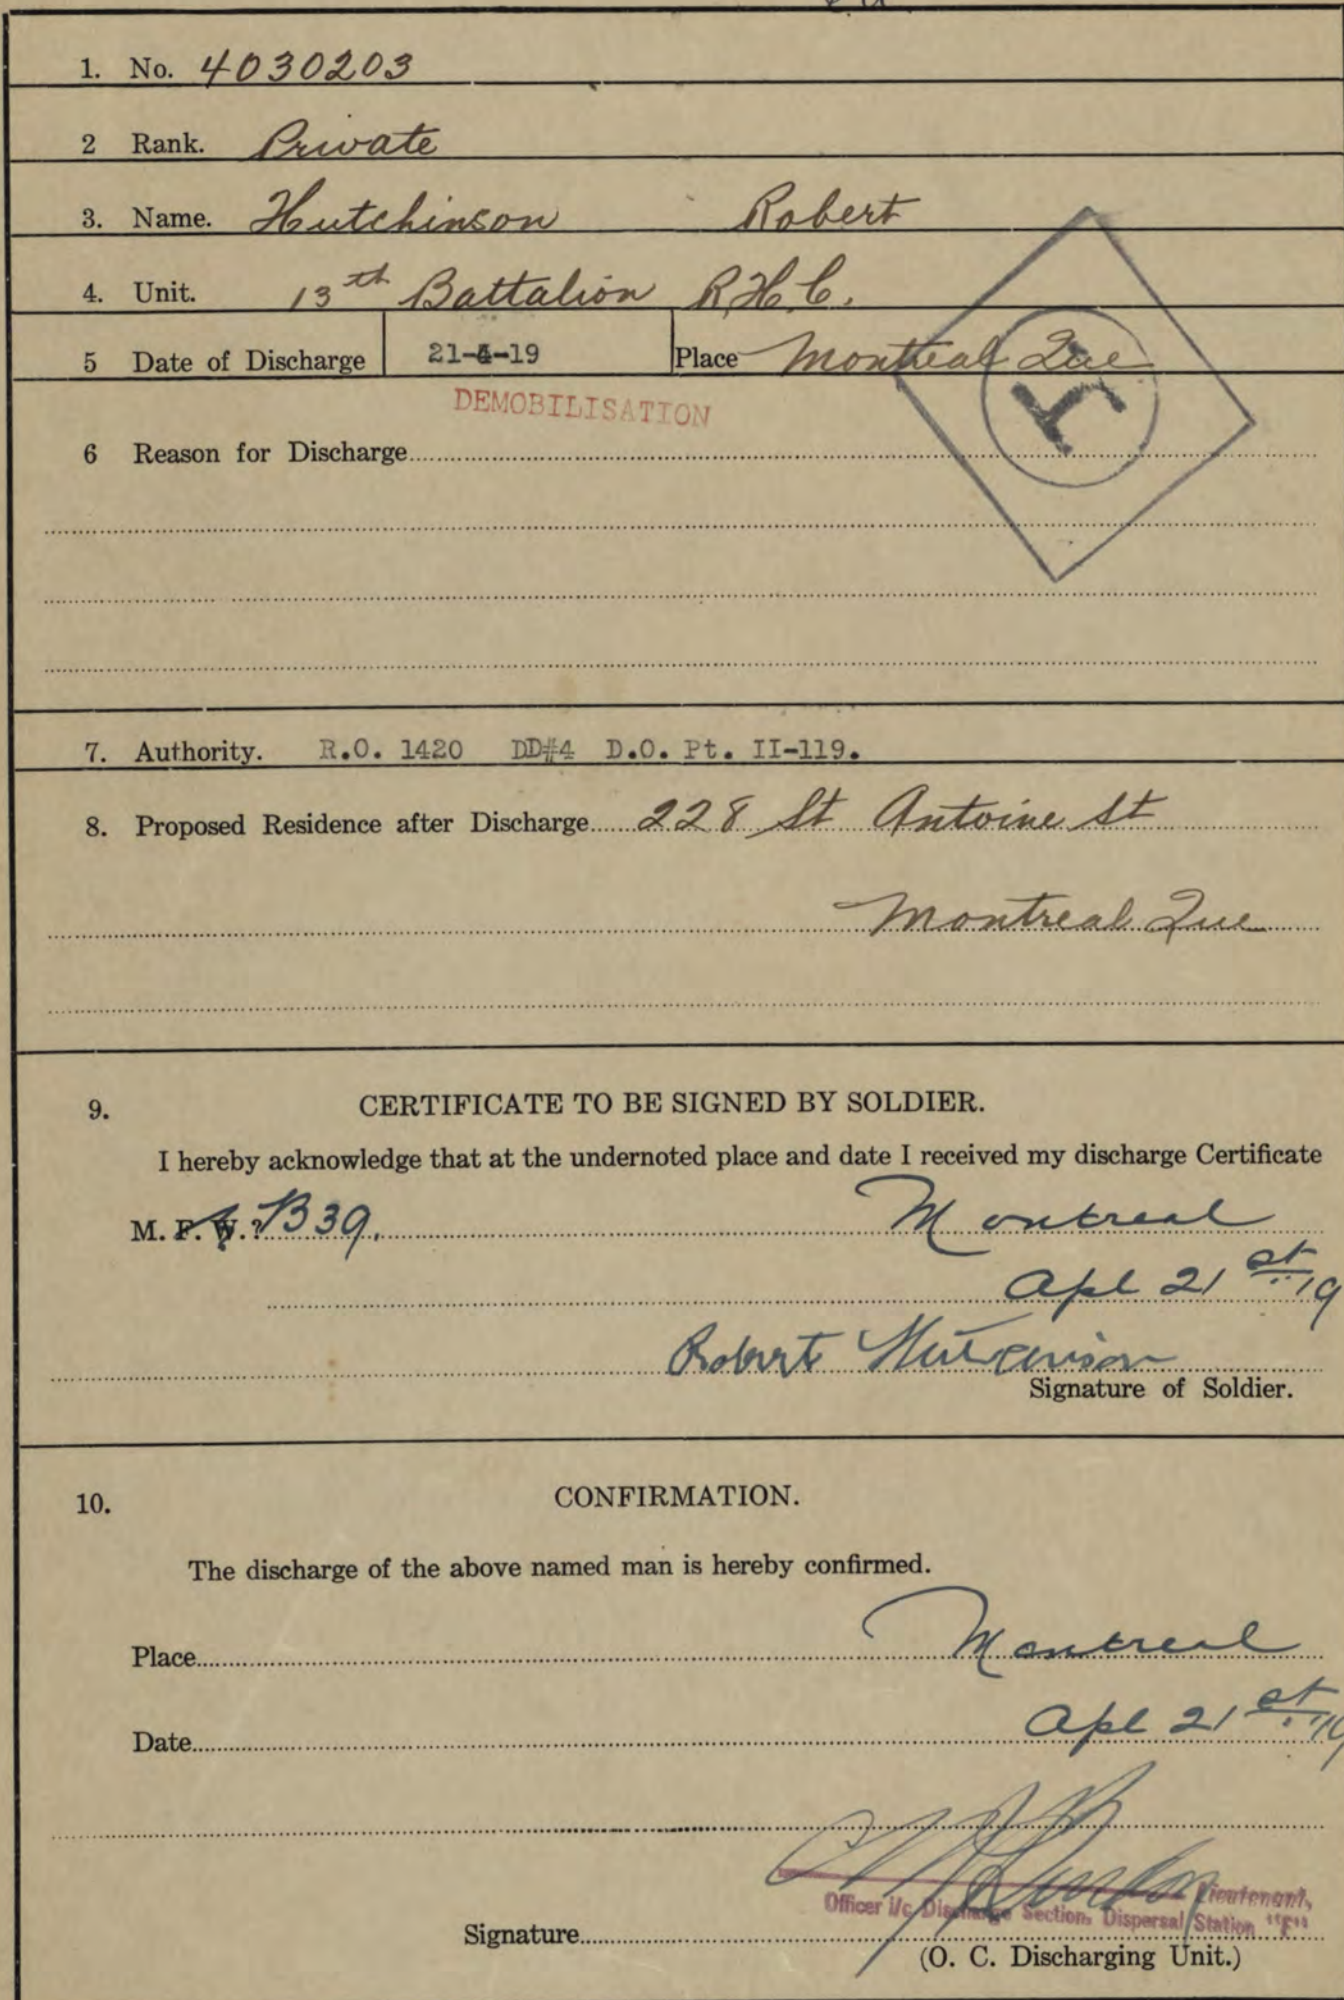 1. No. 4030203
2 Rank. Private
3. Name. Hutchinson Robert
4. Unit. 13th Battalion R.H.C.
5 Date of Discharge 21-4-19 Place Montreal Que
DEMOBILISATION
6 Reason for Discharge
7. Authority. R.O. 1420 DD#4 D.O. Pt. II-119.
8. Proposed Residence after Discharge 228 St Antoine St
Montreal Que
9. CERTIFICATE TO BE SIGNED BY SOLDIER.
I hereby acknowledge that at the undernoted place and date I received my discharge Certificate
M. F. W.? B39. Montreal
Apl 21st 19
Robert Hutchinson
Signature of Soldier.
10. CONFIRMATION.
The discharge of the above named man is hereby confirmed.
Place Montreal
Date Apl 21st 19
Lieutenant,
Officer i/c Discharge Section, Dispersal Station "F"
Signature
(O. C. Discharging Unit.)